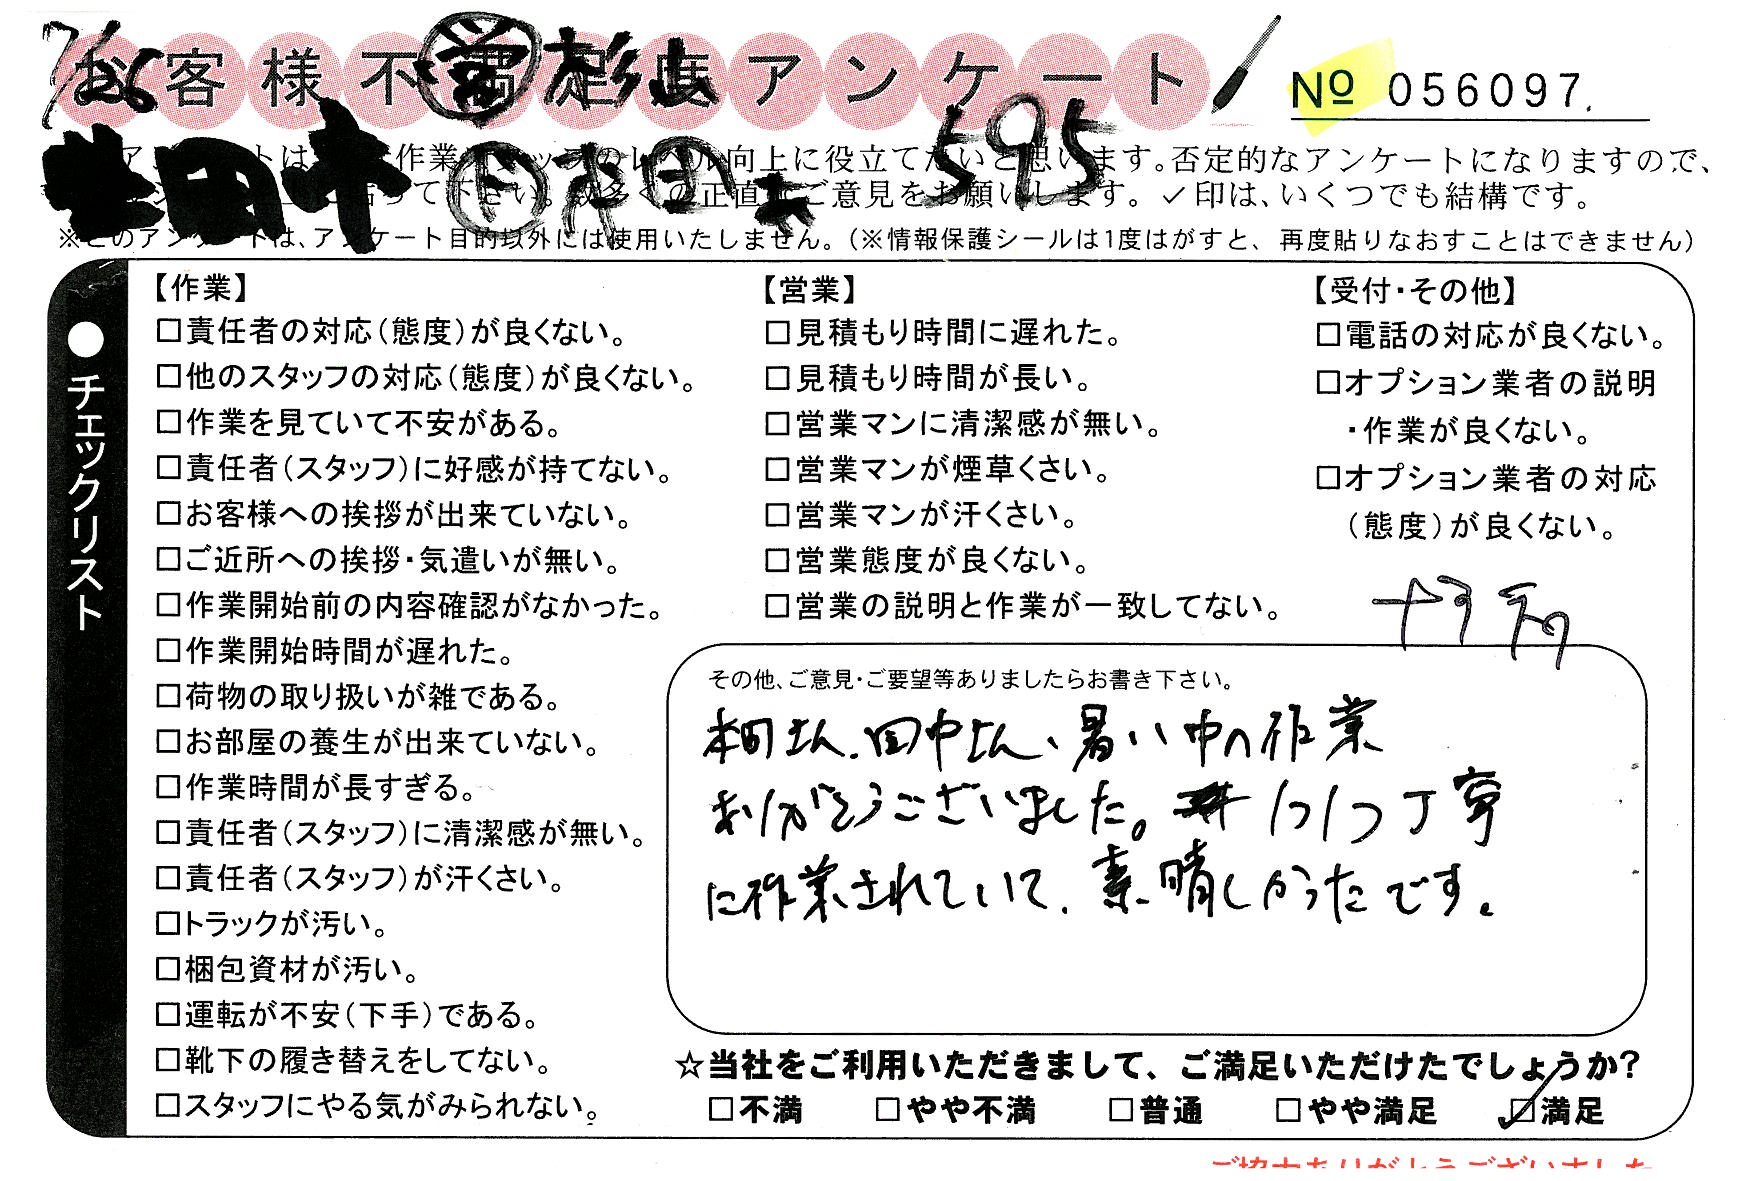 7/26 営 杉山
お客様不満足度アンケート
№ 056097.
595
アンケートは 作業 スタッフのレベル向上に役立てたいと思います。否定的なアンケートになりますので、
って下さい。数多くの正直なご意見をお願いします。✓印は、いくつでも結構です。
※このアンケートは、アンケート目的以外には使用いたしません。(※情報保護シールは1度はがすと、再度貼りなおすことはできません)
●チェックリスト
【作業】
□責任者の対応(態度)が良くない。
□他のスタッフの対応(態度)が良くない。
□作業を見ていて不安がある。
□責任者(スタッフ)に好感が持てない。
□お客様への挨拶が出来ていない。
□ご近所への挨拶・気遣いが無い。
□作業開始前の内容確認がなかった。
□作業開始時間が遅れた。
□荷物の取り扱いが雑である。
□お部屋の養生が出来ていない。
□作業時間が長すぎる。
□責任者(スタッフ)に清潔感が無い。
□責任者(スタッフ)が汗くさい。
□トラックが汚い。
□梱包資材が汚い。
□運転が不安(下手)である。
□靴下の履き替えをしてない。
□スタッフにやる気がみられない。
【営業】
□見積もり時間に遅れた。
□見積もり時間が長い。
□営業マンに清潔感が無い。
□営業マンが煙草くさい。
□営業マンが汗くさい。
□営業態度が良くない。
□営業の説明と作業が一致してない。
【受付・その他】
□電話の対応が良くない。
□オプション業者の説明
・作業が良くない。
□オプション業者の対応
(態度)が良くない。
その他、ご意見・ご要望等ありましたらお書き下さい。
本田さん、田中さん、暑い中の作業
ありがとうございました。1つ1つ丁寧
に作業されていて、素晴しかったです。
☆当社をご利用いただきまして、ご満足いただけたでしょうか?
□不満 □やや不満 □普通 □やや満足 ☑満足
ご協力ありがとうございました